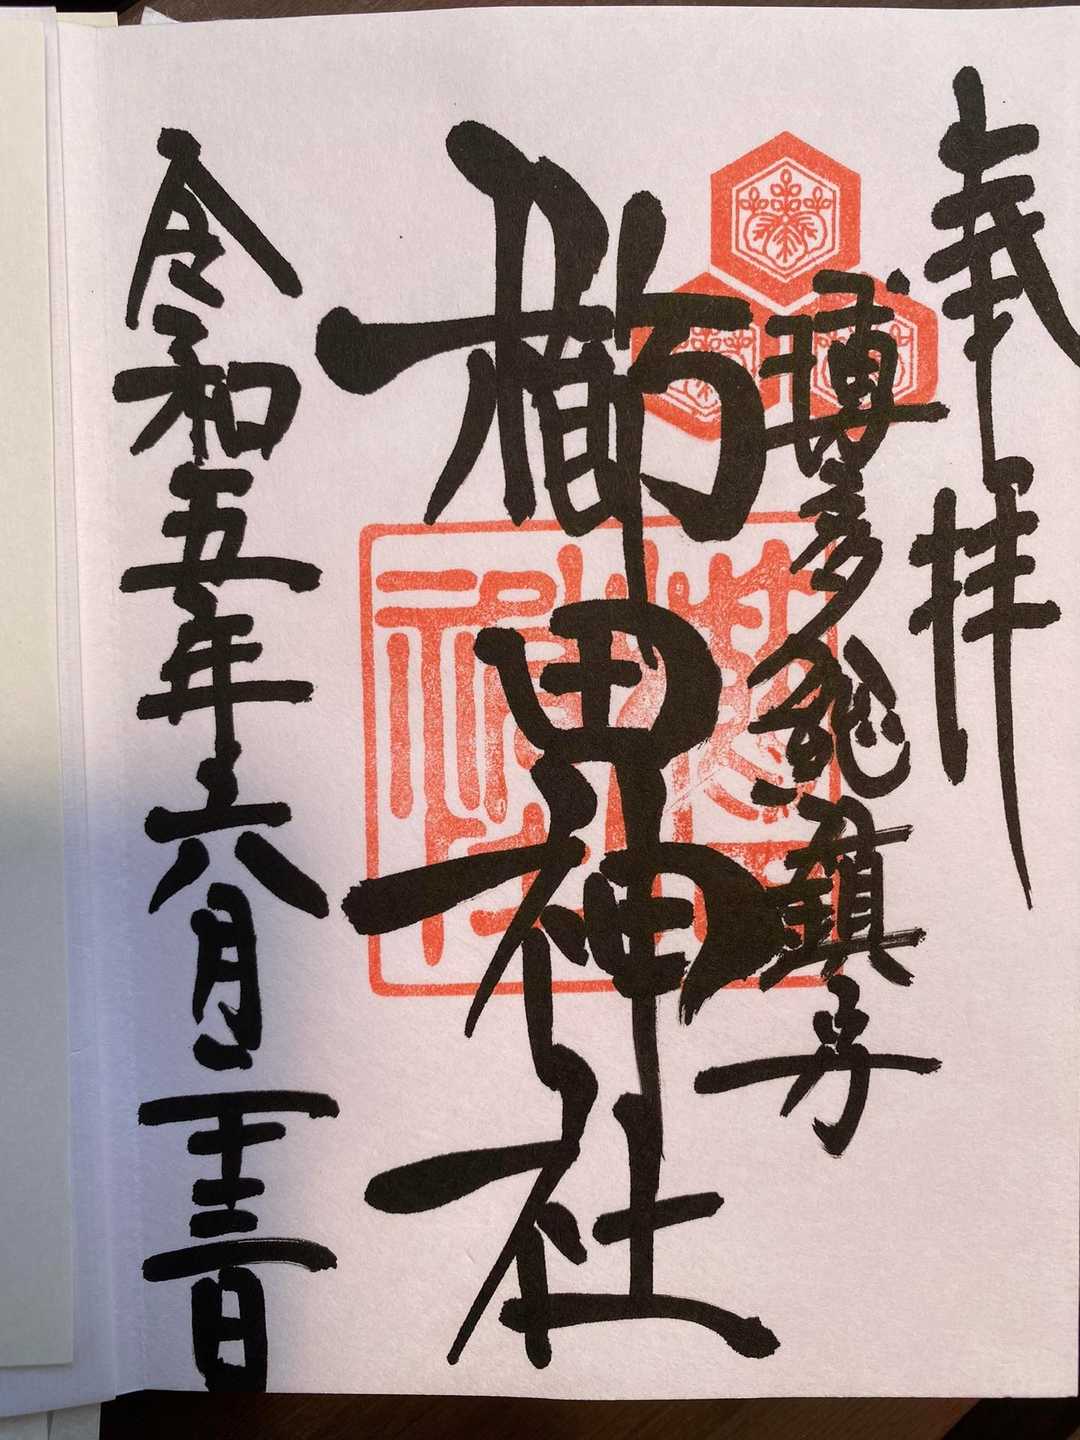 奉拝
博多総鎮守
櫛田神社
令和五年六月二十三日
櫛田
神社